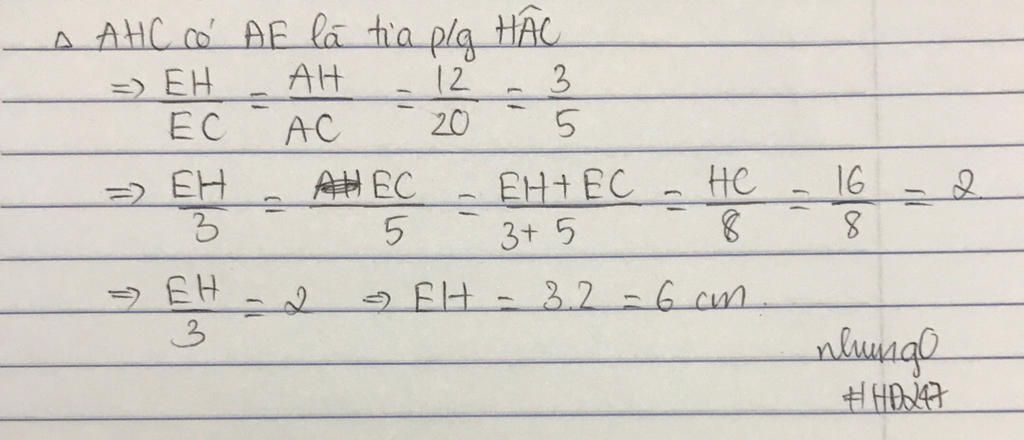 Δ AHC có AE là tia p/g HÂC
=> EH/EC = AH/AC = 12/20 = 3/5
=> EH/3 = EC/5 = EH+EC/3+5 = HC/8 = 16/8 = 2
=> EH/3 = 2 => EH = 3.2 = 6 cm.
nhung0
#HĐ247